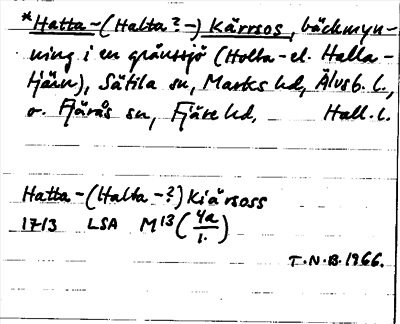 *Hatta-(Halta?-) Kärrsos, bäckmyn-
ning i en gränssjö (Holta- el. Halla-
tjärn), Sätila sn, Marks hd, Älvsb. l.,
o. Fjärås sn, Fjäre hd, Hall. l.
Hatta-(Halta-?) Kiärsoss
1713 LSA M13 (4a/1.)
T.N.B. 1966.